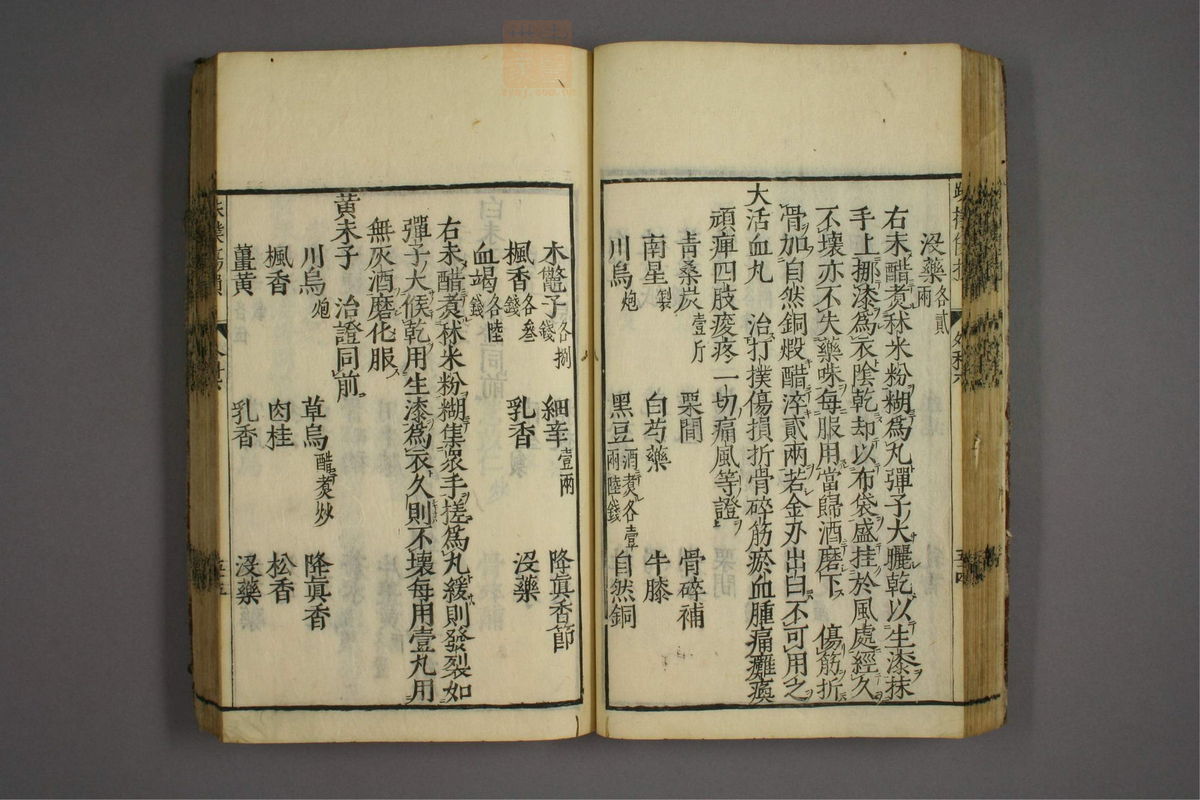 沒藥各貳兩
右末醋煮秫米粉糊爲丸彈子大曬乾以生漆抹
手上挪漆爲衣陰乾却以布袋盛挂於風處經久
不壞亦不失藥味每服用當歸酒磨下 傷筋折
骨加自然銅煅醋淬貳兩若金刃出臼不可用之
大活血丸 治打撲傷損折骨碎筋瘀血腫痛癱瘓
頑痺四肢痠疼一切痛風等證
靑桑炭壹斤 栗間 骨碎補
南星製 白芍藥 牛膝
川烏炮 黑豆酒煮各壹兩陸錢 自然銅
木鼈子各捌錢 細辛壹兩 降眞香節
楓香各叄錢 乳香 沒藥
血竭各陸錢
右末醋煮秫米粉糊集衆手搓爲丸緩則發裂如
彈子大候乾用生漆爲衣久則不壞每用壹丸用
無灰酒磨化服
黃末子 治證同前
川烏炮 草烏醋煮炒 降眞香
楓香 肉桂 松香
薑黃 乳香 沒藥